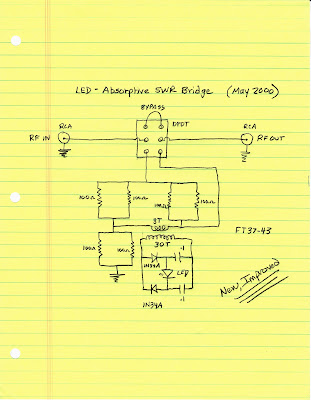 LED - Absorptive SWR Bridge (May 2000)
BYPASS
RCA
DPDT
RCA
RF IN
RF OUT
100Ω
100Ω
100Ω
100Ω
3T
FT37-43
100Ω
100Ω
30T
.1
1N34A
LED
1N34A
.1
New, Improved